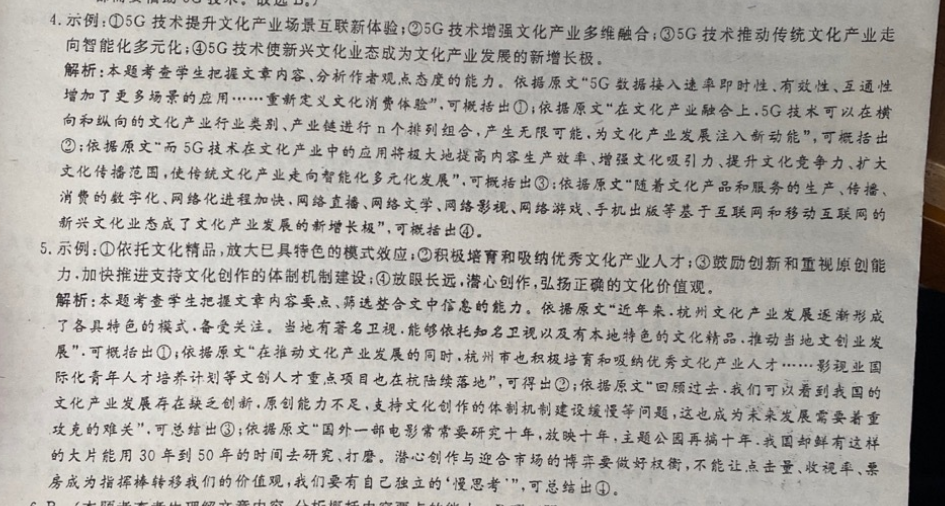 4. 示例:①5G 技术提升文化产业场景互联新体验;②5G 技术增强文化产业多维融合;③5G 技术推动传统文化产业走
向智能化多元化;④5G 技术使新兴文化业态成为文化产业发展的新增长极。
解析:本题考查学生把握文章内容、分析作者观点态度的能力。依据原文“5G 数据接入速率即时性、有效性、互通性
增加了更多场景的应用……重新定义文化消费体验”,可概括出①;依据原文“在文化产业融合上,5G 技术可以在横
向和纵向的文化产业行业类别、产业链进行 n 个排列组合,产生无限可能,为文化产业发展注入新动能”,可概括出
②;依据原文“而 5G 技术在文化产业中的应用将极大地提高内容生产效率、增强文化吸引力、提升文化竞争力、扩大
文化传播范围,使传统文化产业走向智能化多元化发展”,可概括出③;依据原文“随着文化产品和服务的生产、传播、
消费的数字化、网络化进程加快,网络直播、网络文学、网络影视、网络游戏、手机出版等基于互联网和移动互联网的
新兴文化业态成了文化产业发展的新增长极”,可概括出④。
5. 示例:①依托文化精品,放大已具特色的模式效应;②积极培育和吸纳优秀文化产业人才;③鼓励创新和重视原创能
力,加快推进支持文化创作的体制机制建设;④放眼长远,潜心创作,弘扬正确的文化价值观。
解析:本题考查学生把握文章内容要点、筛选整合文中信息的能力。依据原文“近年来,杭州文化产业发展逐渐形成
了各具特色的模式,备受关注。当地有著名卫视,能够依托知名卫视以及有本地特色的文化精品,推动当地文创业发
展”,可概括出①;依据原文“在推动文化产业发展的同时,杭州市也积极培育和吸纳优秀文化产业人才……影视业国
际化青年人才培养计划等文创人才重点项目也在杭陆续落地”,可得出②;依据原文“回顾过去,我们可以看到我国的
文化产业发展存在缺乏创新,原创能力不足,支持文化创作的体制机制建设缓慢等问题,这也成为未来发展需要着重
攻克的难关”,可总结出③;依据原文“国外一部电影常常要研究十年,放映十年,主题公园再搞十年,我国却鲜有这样
的大片能用 30 年到 50 年的时间去研究、打磨。潜心创作与迎合市场的博弈要做好权衡,不能让点击量、收视率、票
房成为指挥棒转移我们的价值观,我们要有自己独立的‘慢思考’”,可总结出④。